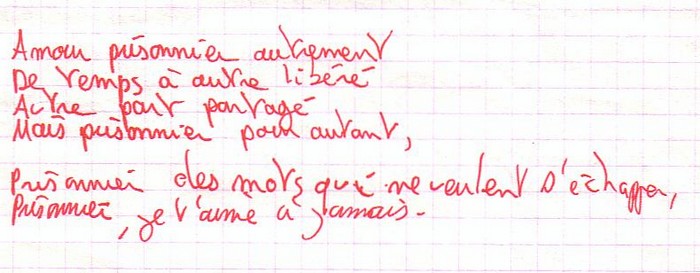 Amour prisonnier autrement
De temps à autre libéré
Autre part partagé
Mais prisonnier pour autant,
Prisonnier des mots qui ne veulent s'échapper,
Prisonnier, je t'aime à jamais.